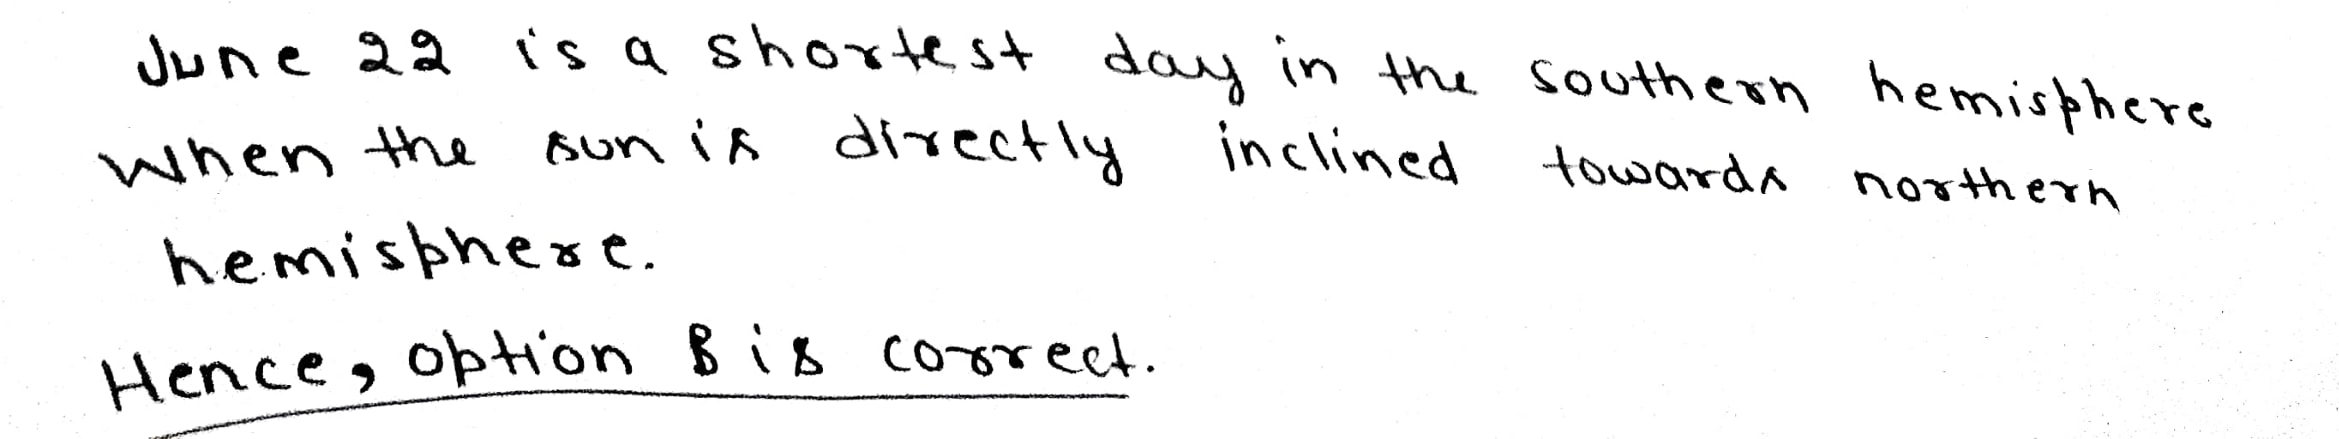 June 22 is a shortest day in the southern hemisphere
When the sun is directly inclined towards northern
hemisphere.
Hence, option B is correct.